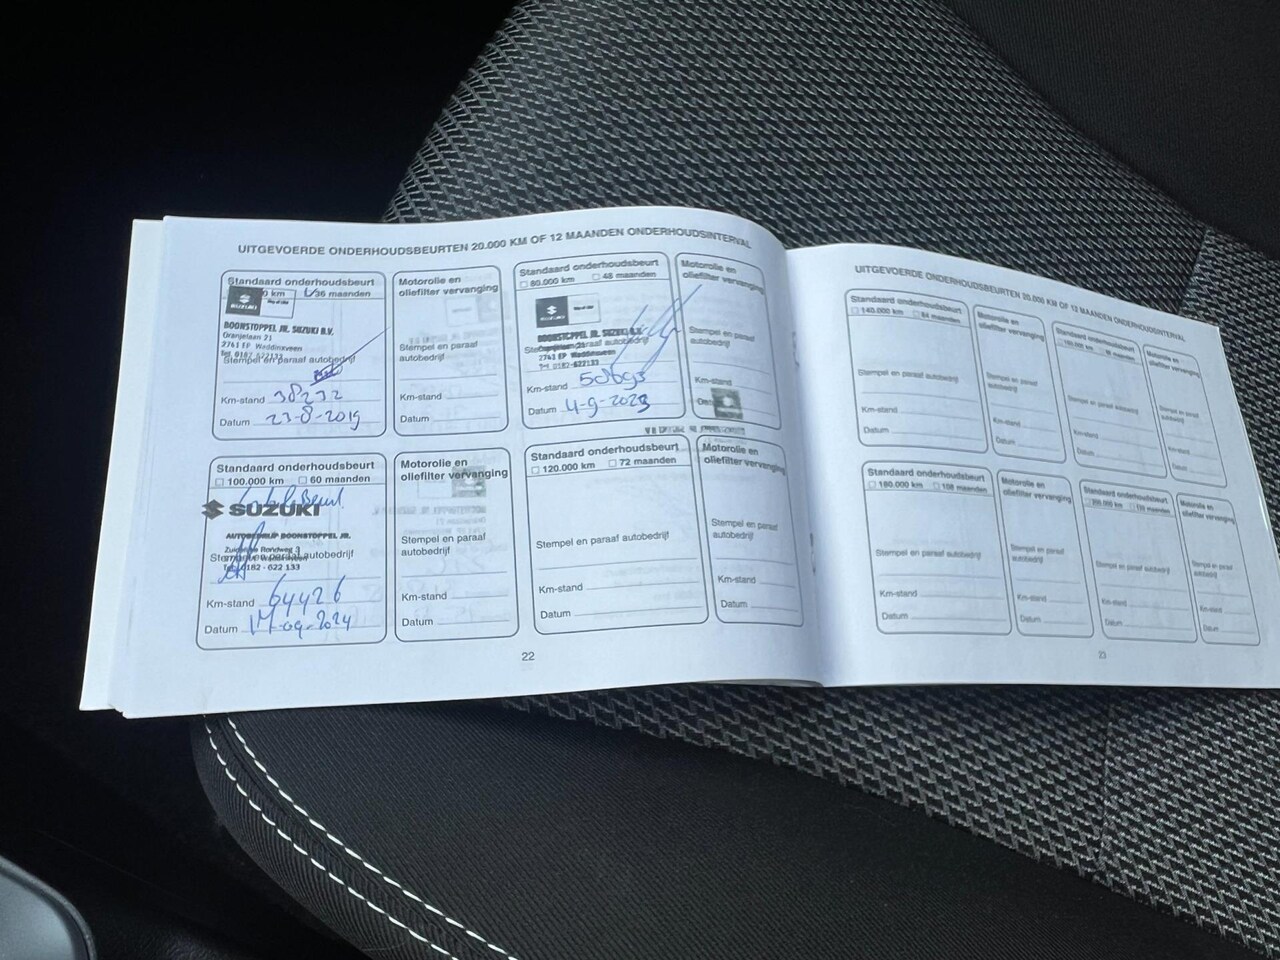 UITGEVOERDE ONDERHOUDSBEURTEN 20.000 KM OF 12 MAANDEN ONDERHOUDSINTERVAL
Standaard onderhoudsbeurt
0 km 36 maanden
SUZUKI
BOONSTOPPEL JR. SUZUKI B.V.
Oranjelaan 21
2741 EP Waddinxveen
Tel. 0182-622133
Stempel en paraaf autobedrijf
Km-stand 38232
Datum 23-8-2019
Motorolie en
oliefilter vervanging
Stempel en paraaf
autobedrijf
Km-stand
Datum
Standaard onderhoudsbeurt
80.000 km 48 maanden
BOONSTOPPEL JR. SUZUKI B.V.
Oranjelaan 21
2741 EP Waddinxveen
Tel. 0182-622133
Km-stand
Datum 4-9-2023
Motorolie en
oliefilter vervanging
Stempel en paraaf
autobedrijf
Km-stand
Standaard onderhoudsbeurt
100.000 km 60 maanden
SUZUKI
AUTOBEDRIJF BOONSTOPPEL JR.
Zuidelijke Rondweg 3
Stempel en paraaf autobedrijf
Tel. 0182 - 622 133
Km-stand 64426
Datum 17-09-2024
Motorolie en
oliefilter vervanging
Stempel en paraaf
autobedrijf
Km-stand
Datum
Standaard onderhoudsbeurt
120.000 km 72 maanden
Stempel en paraaf autobedrijf
Km-stand
Datum
Motorolie en
oliefilter vervanging
Stempel en paraaf
autobedrijf
Km-stand
Datum
22
UITGEVOERDE ONDERHOUDSBEURTEN 20.000 KM OF 12 MAANDEN ONDERHOUDSINTERVAL
Standaard onderhoudsbeurt
140.000 km 84 maanden
Stempel en paraaf autobedrijf
Km-stand
Datum
Motorolie en
oliefilter vervanging
Stempel en paraaf
autobedrijf
Km-stand
Datum
Standaard onderhoudsbeurt
160.000 km 96 maanden
Stempel en paraaf autobedrijf
Km-stand
Datum
Motorolie en
oliefilter vervanging
Stempel en paraaf
autobedrijf
Km-stand
Datum
Standaard onderhoudsbeurt
180.000 km 108 maanden
Stempel en paraaf autobedrijf
Km-stand
Datum
Motorolie en
oliefilter vervanging
Stempel en paraaf
autobedrijf
Km-stand
Datum
Standaard onderhoudsbeurt
200.000 km 120 maanden
Stempel en paraaf autobedrijf
Km-stand
Datum
Motorolie en
oliefilter vervanging
Stempel en paraaf
autobedrijf
Km-stand
Datum
23